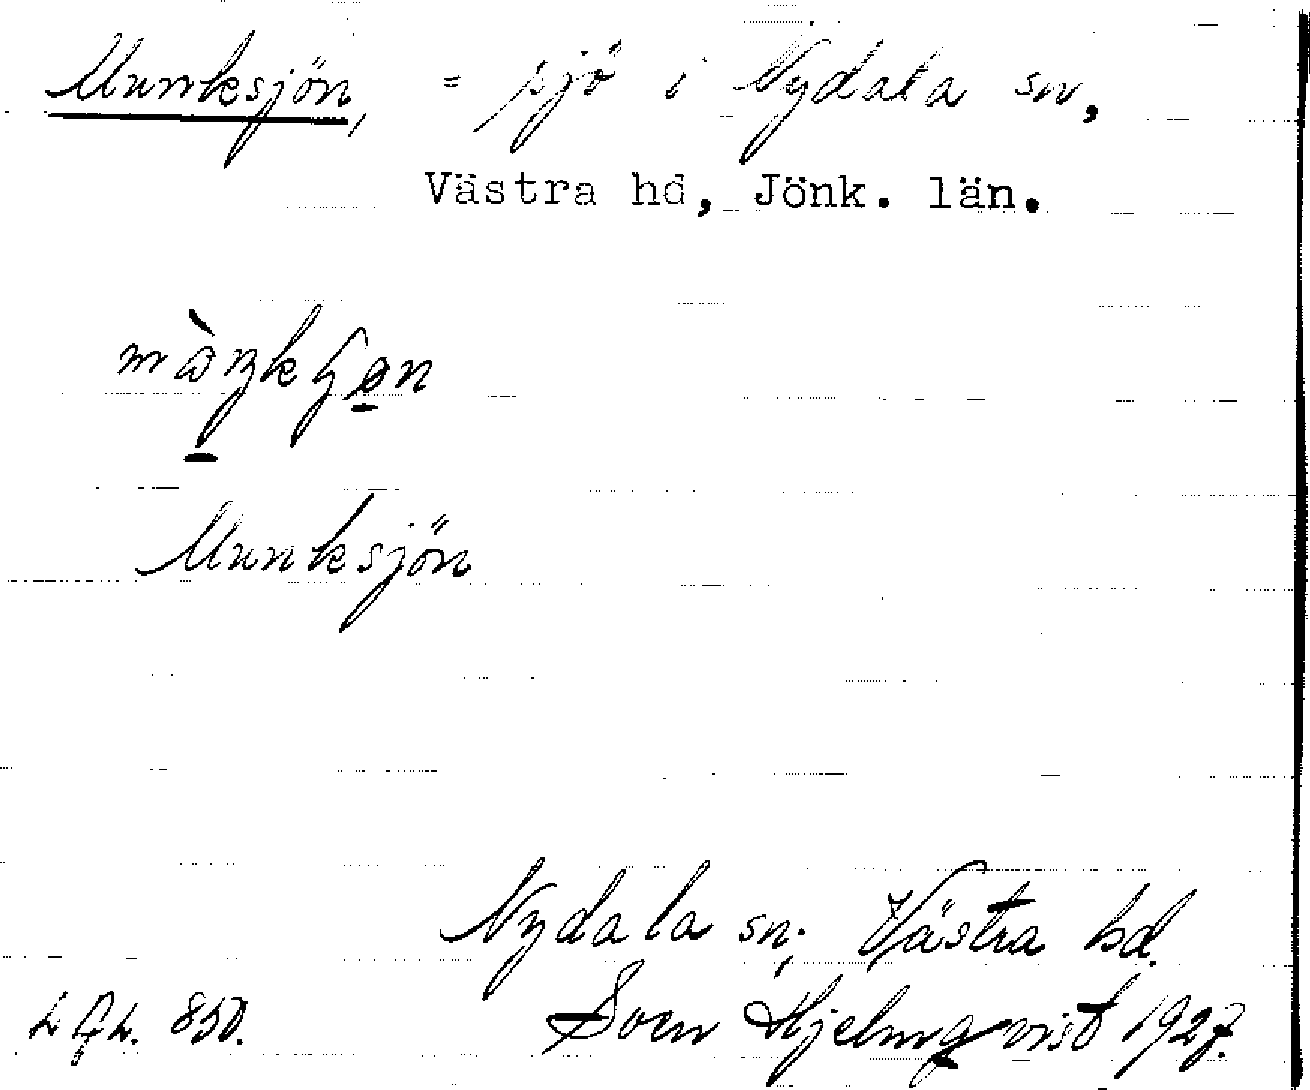 Munksjön, = sjö i Nydala sn,
Västra hd, Jönk. län.
Munksjön
Nydala sn; Västra hd.
Sven Hjelmqvist 1927.